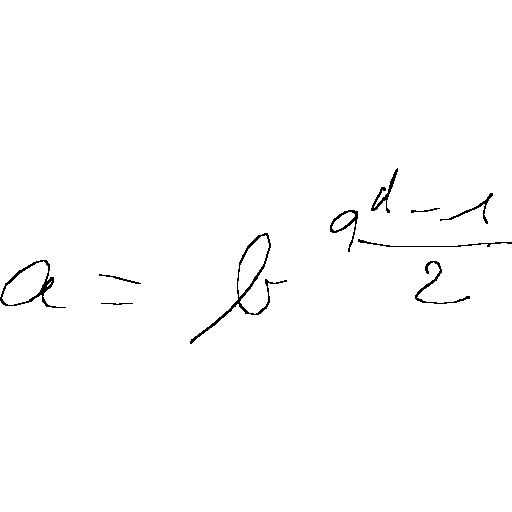 a = b^{\frac{q^d - 1}{2}}